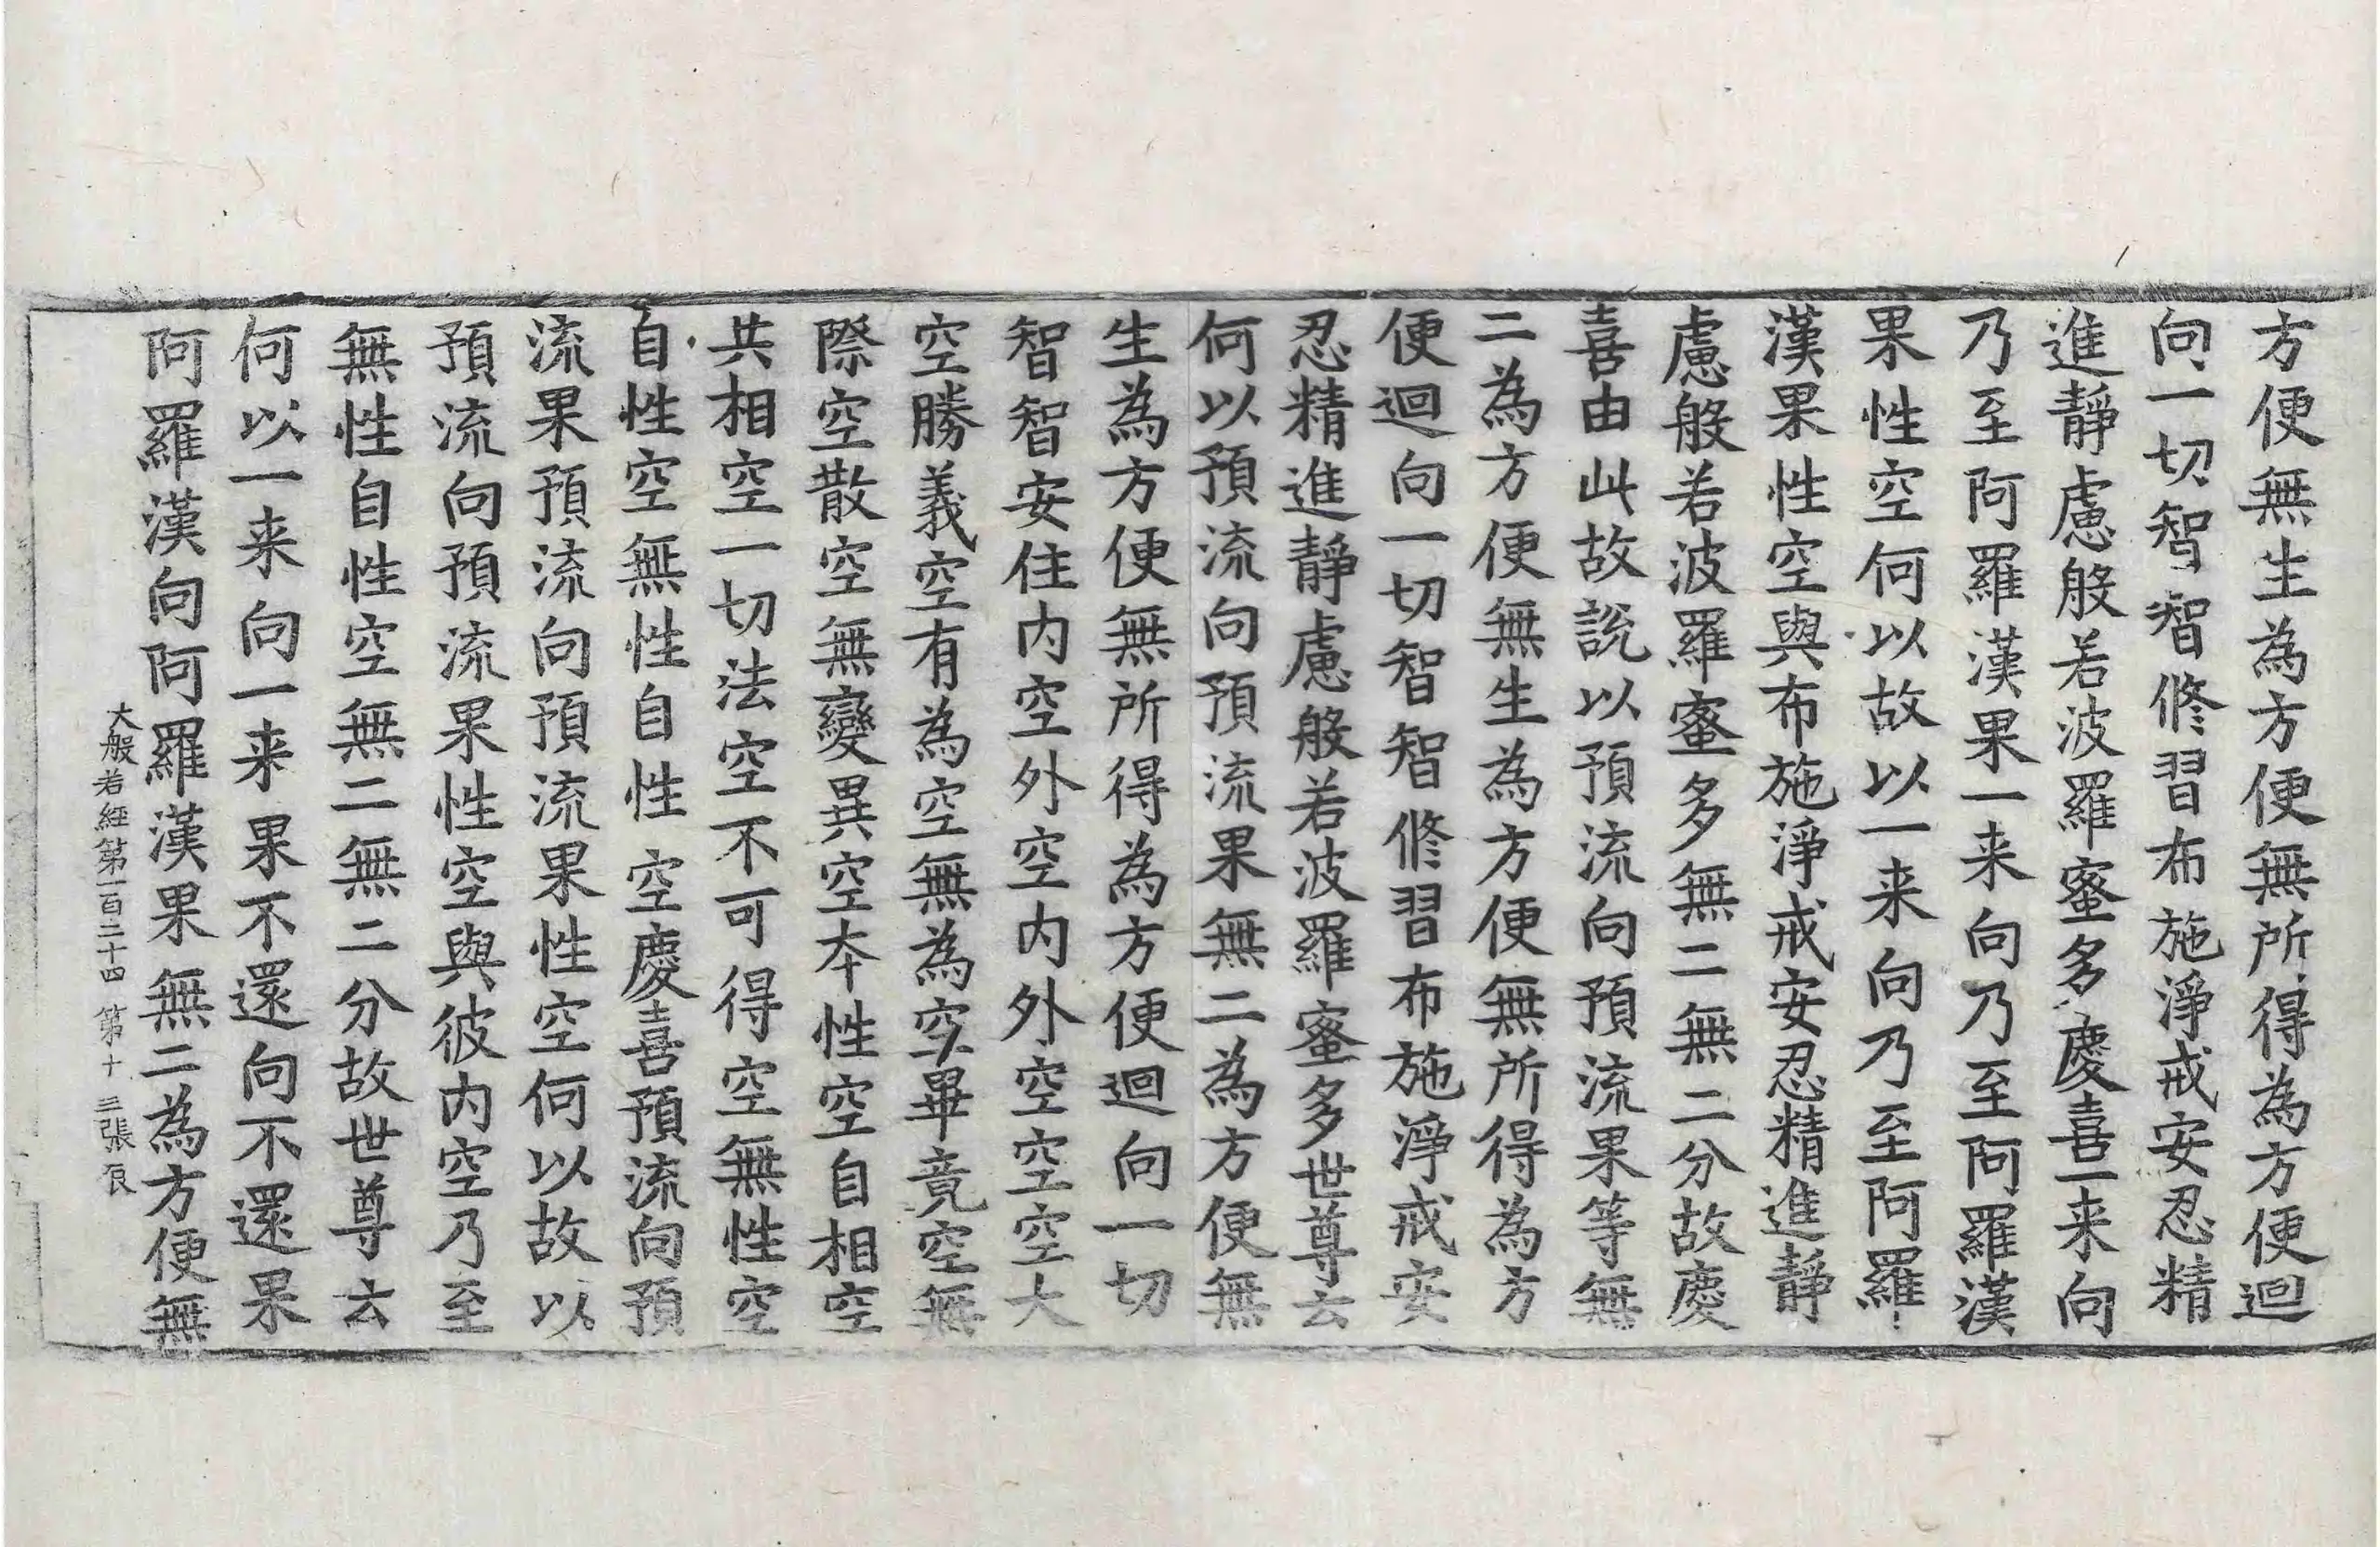 方便無生為方便無所得為方便迴
向一切智智修習布施淨戒安忍精
進靜慮般若波羅蜜多慶喜一来向
乃至阿羅漢果一来向乃至阿羅漢
果性空何以故以一来向乃至阿羅
漢果性空與布施淨戒安忍精進靜
慮般若波羅蜜多無二無二分故慶
喜由此故說以預流向預流果等無
二為方便無生為方便無所得為方
便迴向一切智智修習布施淨戒安
忍精進靜慮般若波羅蜜多世尊云
何以預流向預流果無二為方便無
生為方便無所得為方便迴向一切
智智安住内空外空内外空空空大
空勝義空有為空無為空畢竟空無
際空散空無變異空本性空自相空
共相空一切法空不可得空無性空
自性空無性自性空慶喜預流向預
流果預流向預流果性空何以故以
預流向預流果性空與彼内空乃至
無性自性空無二無二分故世尊云
何以一来向一来果不還向不還果
阿羅漢向阿羅漢果無二為方便無
大般若經第一百二十四 第十三張